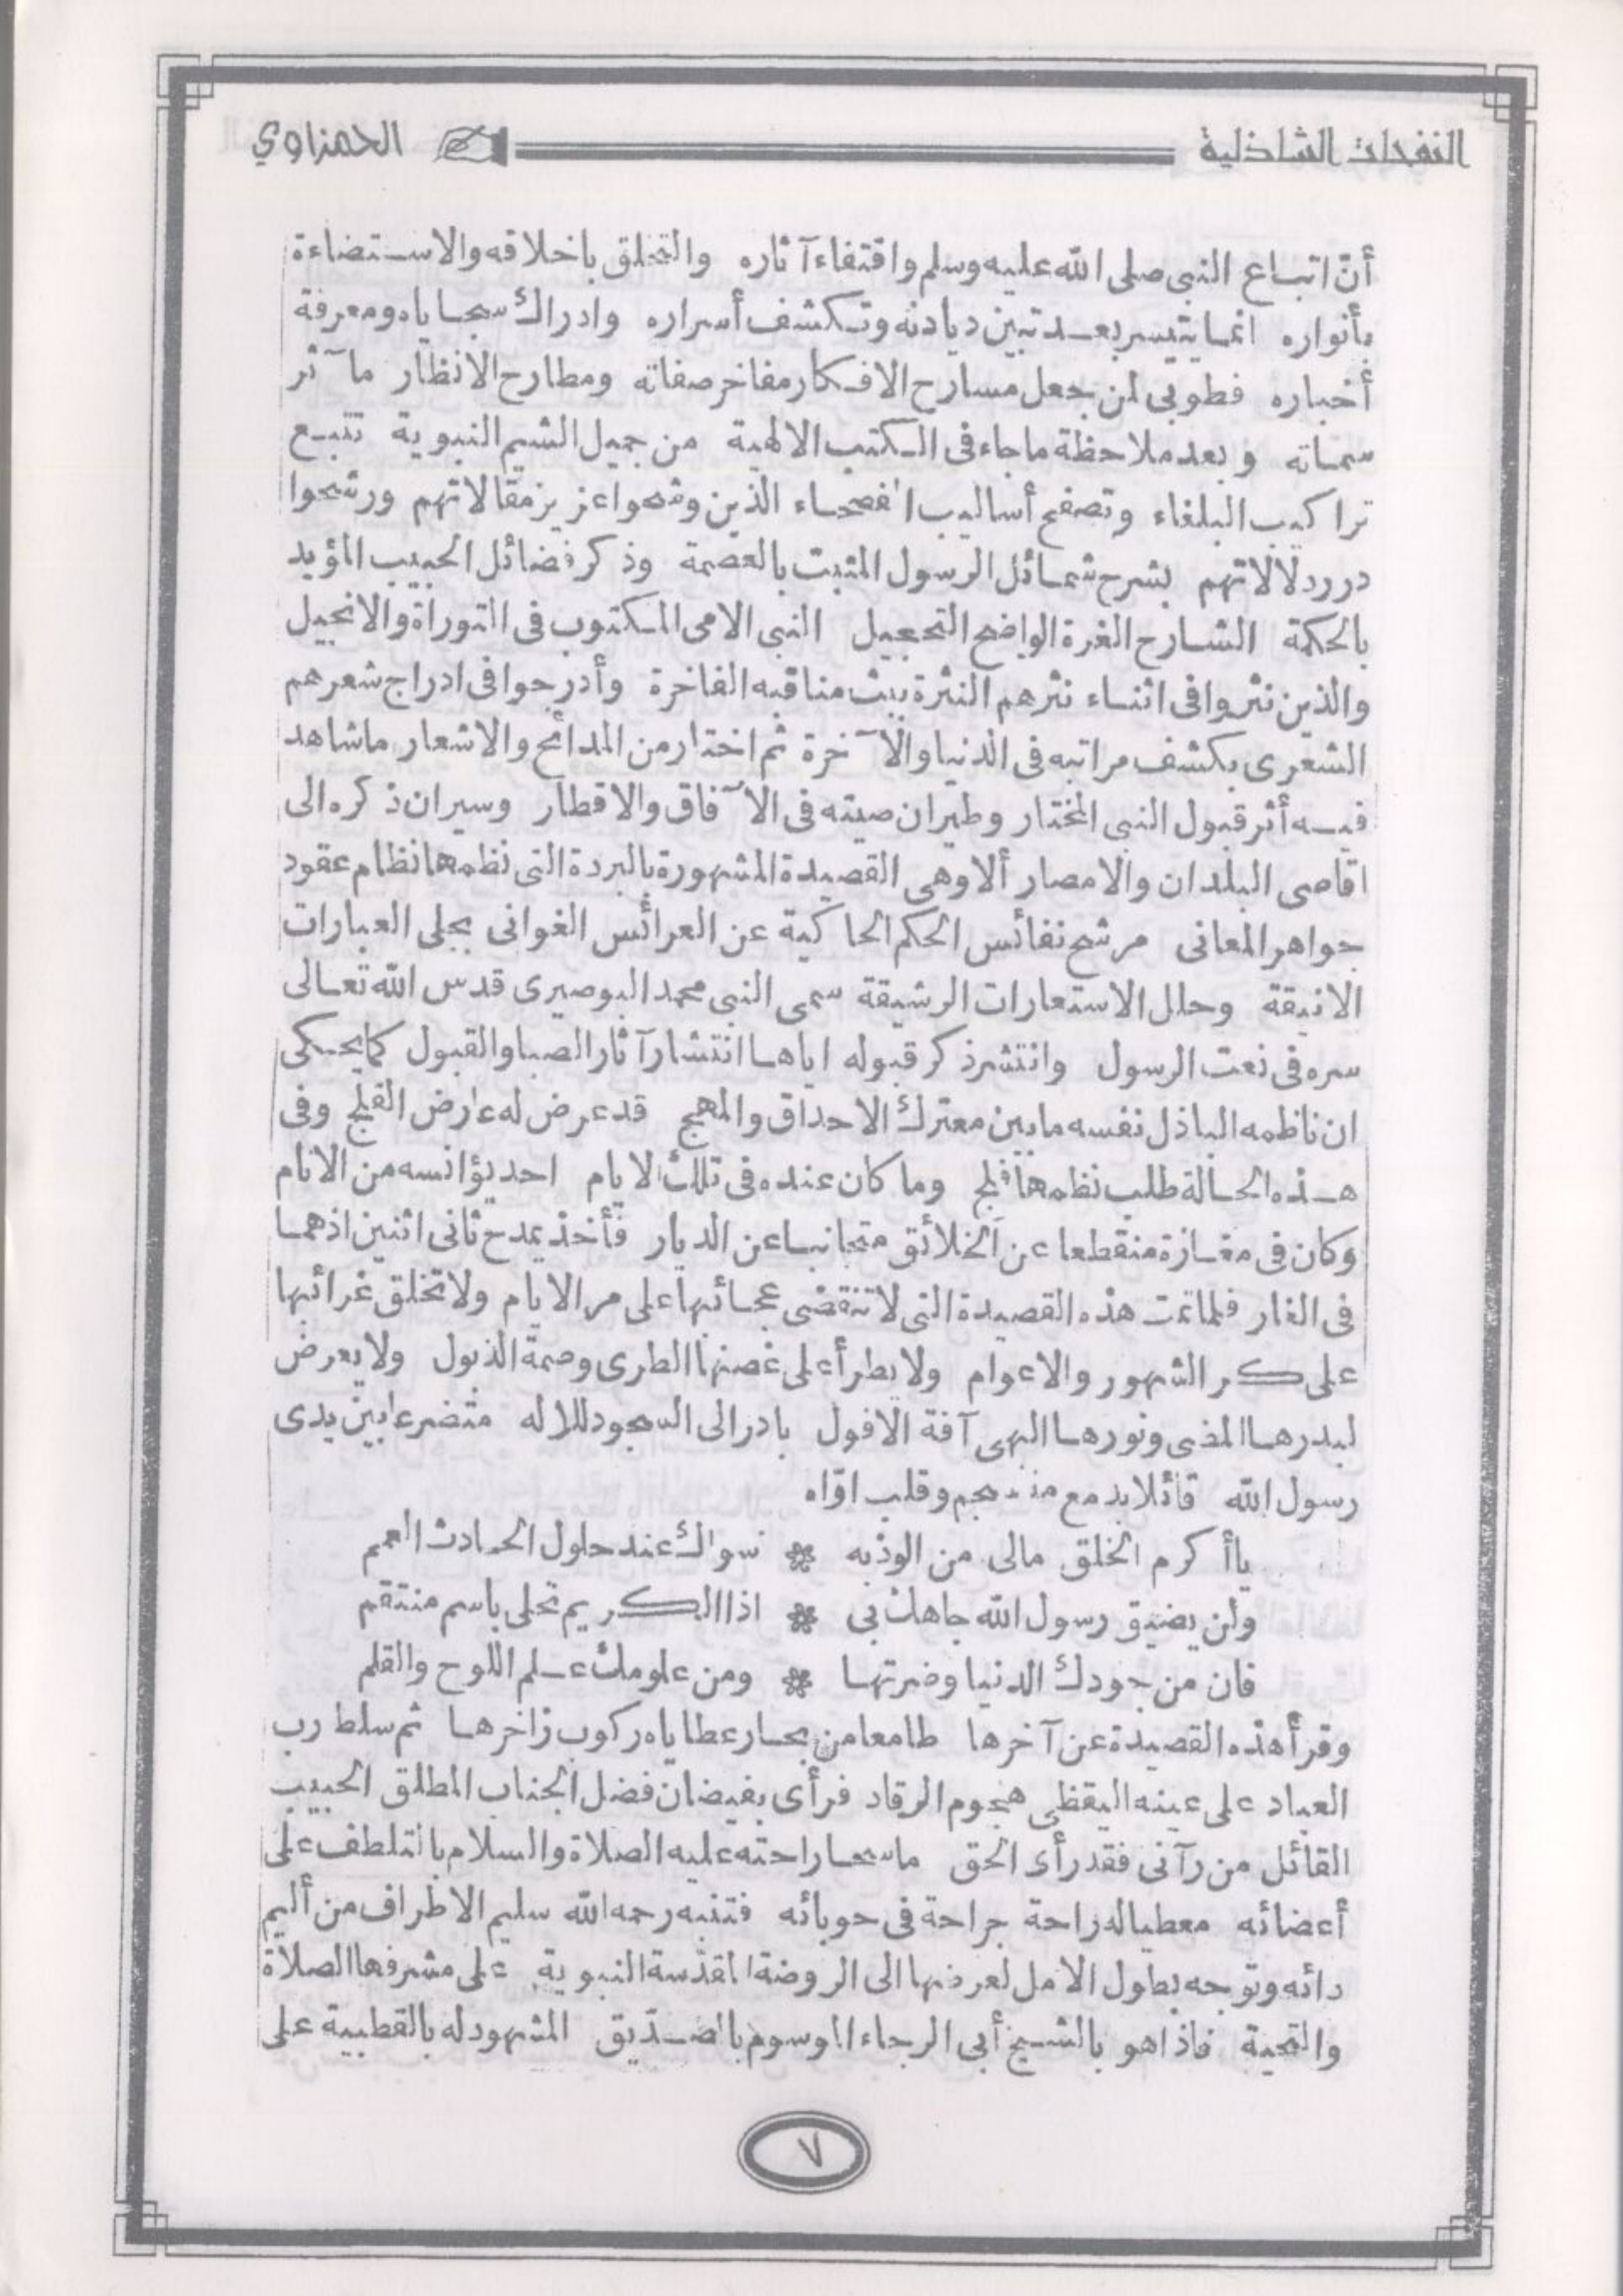 النفحات الشاذلية
الحمزاوي
أنّ اتباع النبى صلى الله عليه وسلم واقتفاء آثاره والتخلق باخلاقه والاستضاءة
بأنواره انما يتيسر بعد تبين ديادنه وتكشف أسراره وادراك سجاياه ومعرفة
أخباره فطوبى لمن جعل مسارح الافكار مفاخر صفاته ومطارح الانظار مآثر
سماته وبعد ملاحظة ما جاء فى الكتب الالهية من جميل الشيم النبوية تتبع
تراكيب البلغاء وتصفح أساليب الفصحاء الذين وشحوا عزيز مقالاتهم ورشحوا
درر دلالاتهم بشرح شمائل الرسول المثبت بالعصمة وذكر فضائل الحبيب المؤيد
بالحكمة الشارح الغرة الواضح التحجيل النبى الامى المكتوب فى التوراة والانجيل
والذين نثروا فى اثناء نثرهم النثرة ببث مناقبه الفاخرة وأدرجوا فى ادراج شعرهم
الشعرى بكشف مراتبه فى الدنيا والآخرة ثم اختار من المدائح والاشعار ما شاهد
فيه أثر قبول النبى المختار وطيران صيته فى الآفاق والاقطار وسيران ذكره الى
اقاصى البلدان والامصار ألا وهى القصيدة المشهورة بالبردة التى نظمها نظام عقود
جواهر المعانى مرشح نفائس الحكم الحاكية عن العرائس الغوانى بحلى العبارات
الانيقة وحلل الاستعارات الرشيقة سمى النبى محمد البوصيرى قدس الله تعالى
سره فى نعت الرسول وانتشر ذكر قبوله اياها انتشار آثار الصبا والقبول كما يحكى
ان ناظمه الباذل نفسه ما بين معترك الاحداق والمهج قد عرض له عارض الفلج وفى
هذه الحالة طلب نظمها فلج وما كان عنده فى تلك الايام احد يؤانسه من الانام
وكان فى مغازة منقطعا عن الخلائق متجانبا عن الديار فأخذ يمدح ثانى اثنين اذ هما
فى الغار فلما تمت هذه القصيدة التى لا تنقضى عجائبها على مر الايام ولا تخلق غرائبها
على كر الشهور والاعوام ولا يطرأ على غصنها الطرى وصمة الذبول ولا يعرض
لبدرها المضى ونورها البهى آفة الافول بادر الى السجود للاله متضرعا بين يدى
رسول الله قائلا بدمع منسجم وقلب اوّاه
يا أكرم الخلق مالى من الوذ به ❀ سواك عند حلول الحادث العمم
ولن يضيق رسول الله جاهك بى ❀ اذا الكريم تحلى باسم منتقم
فان من جودك الدنيا وضرتها ❀ ومن علومك علم اللوح والقلم
وقرأ هذه القصيدة عن آخرها طامعا من بحار عطاياه ركوب زاخرها ثم سلط رب
العباد على عينه اليقظى هجوم الرقاد فرأى بفيضان فضل الجناب المطلق الحبيب
القائل من رآنى فقد رأى الحق ماسحا راحته عليه الصلاة والسلام بالتلطف على
أعضائه معطيا له راحة جراحة فى حوبائه فتنبه رحمه الله سليم الاطراف من أليم
دائه وتوجه بطول الامل لعرضها الى الروضة المقدسة النبوية على مشرفها الصلاة
والتحية فاذا هو بالشيخ أبى الرجاء الموسوم بالصديق المشهود له بالقطبية على
٧